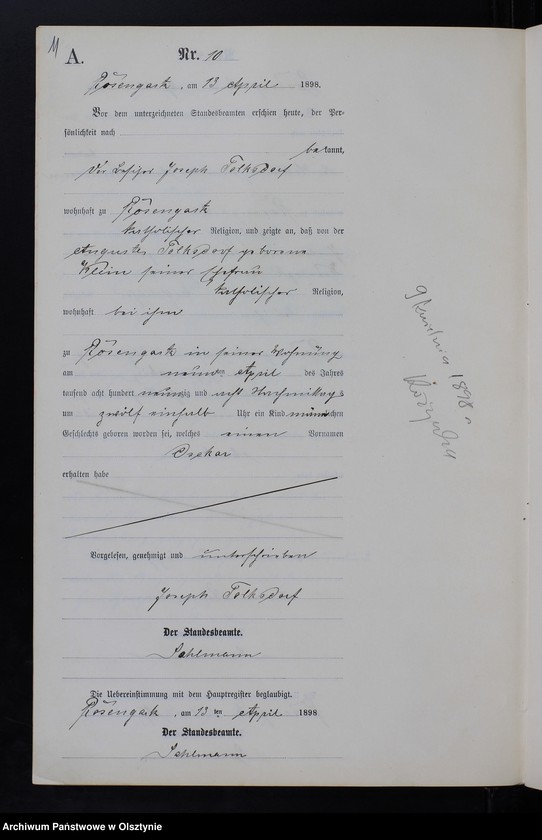 11
A.
Nr. 10
Rosengart, am 13 April 1898.
Vor dem unterzeichneten Standesbeamten erschien heute, der Per-
sönlichkeit nach
bekannt,
der Besitzer Joseph Tolksdorf
wohnhaft zu Rosengart
katholischer Religion, und zeigte an, daß von der
Auguste Tolksdorf geborene
Klein seiner Ehefrau
katholischer Religion,
wohnhaft bei ihm
zu Rosengart in seiner Wohnung
am neunten April des Jahres
tausend acht hundert neunzig und acht Nachmittags
um zwölf einhalb Uhr ein Kind männlichen
Geschlechts geboren worden sei, welches einen Vornamen
Oskar
erhalten habe
Vorgelesen, genehmigt und unterschrieben
Joseph Tolksdorf
Der Standesbeamte.
Sahlmann
Die Uebereinstimmung mit dem Hauptregister beglaubigt.
Rosengart, am 13 ten April 1898
Der Standesbeamte.
Sahlmann
9 kwietnia 1898 r
Archiwum Państwowe w Olsztynie